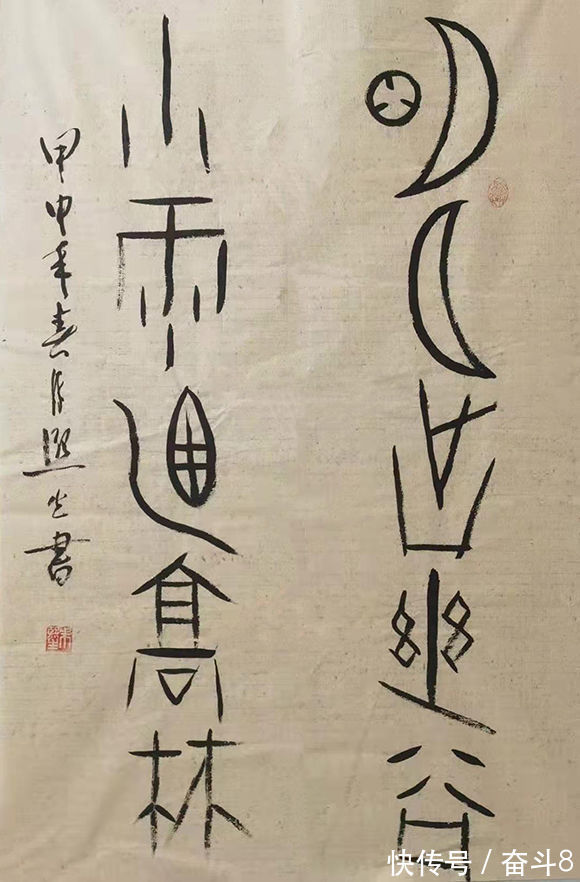 明月出幽谷
小雨高林
甲申年春書
快传号 / 奋斗8